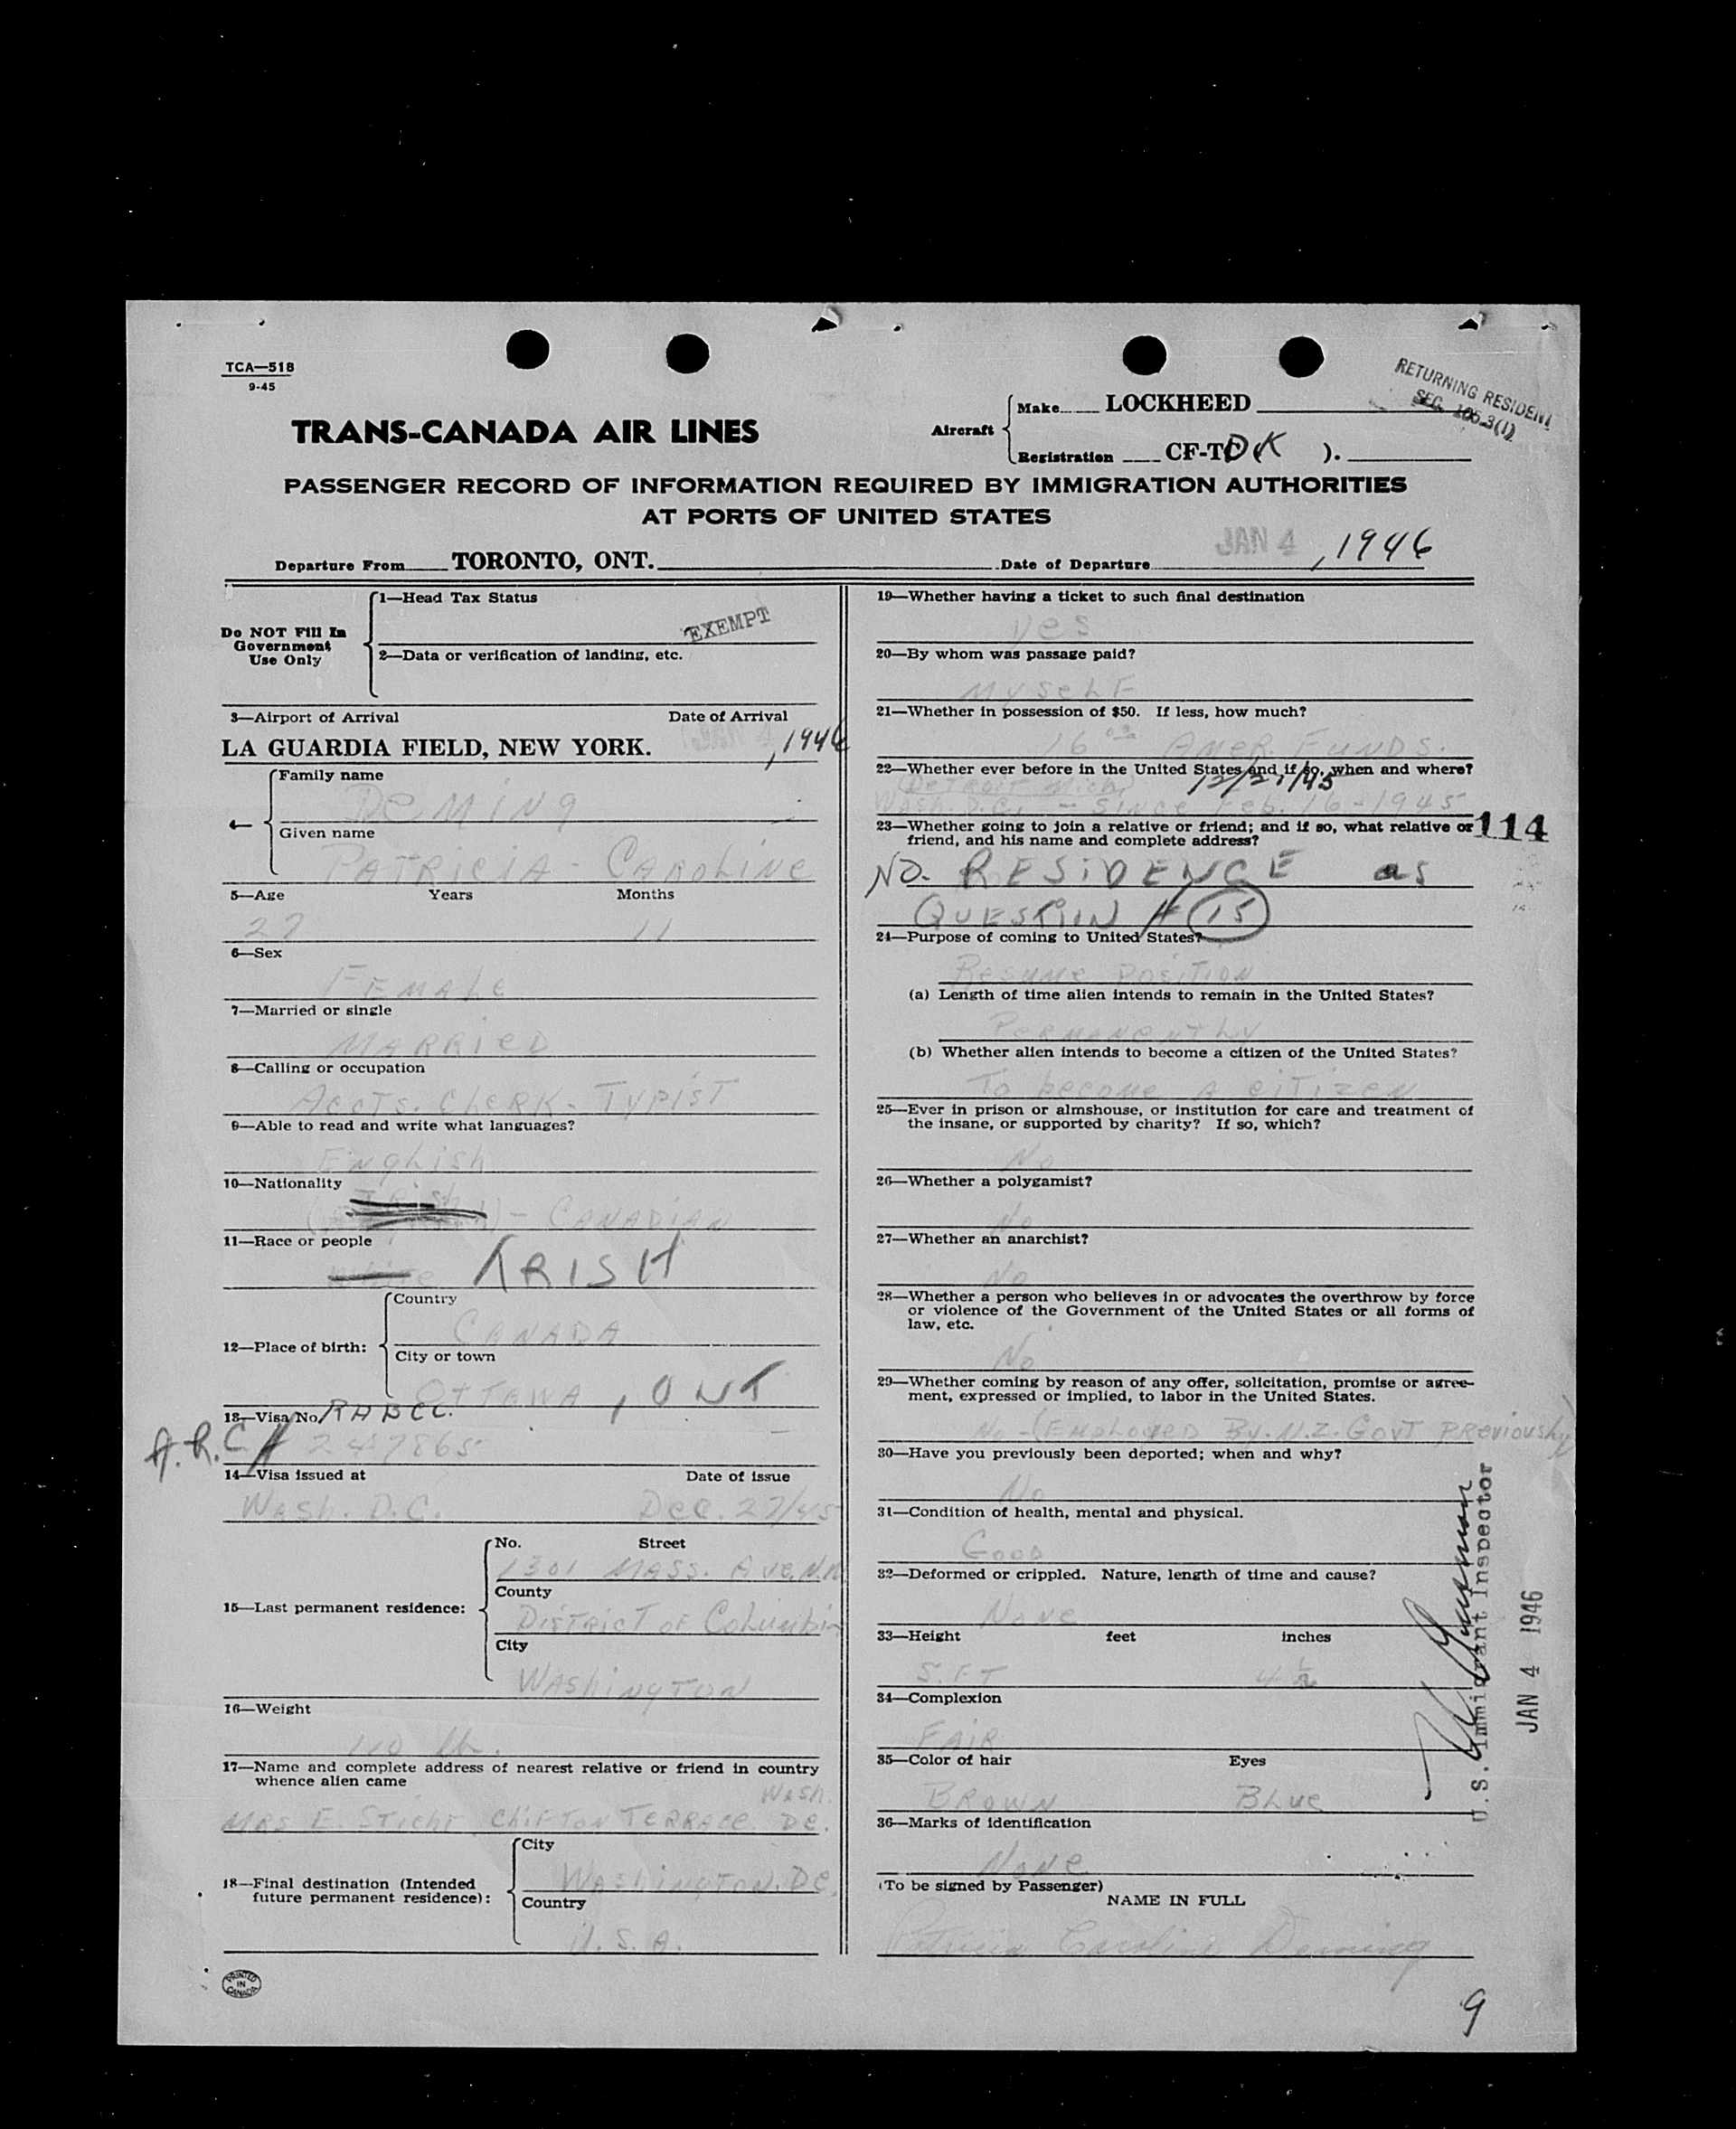 TCA—518
9-45
RETURNING RESIDENT
SEC. 105.3(1)
Aircraft
Make LOCKHEED
Registration CF-T DK ).
TRANS-CANADA AIR LINES
PASSENGER RECORD OF INFORMATION REQUIRED BY IMMIGRATION AUTHORITIES
AT PORTS OF UNITED STATES
Departure From TORONTO, ONT. Date of Departure JAN 4, 1946
Do NOT Fill In
Government
Use Only
1—Head Tax Status
EXEMPT
2—Data or verification of landing, etc.
3—Airport of Arrival Date of Arrival
LA GUARDIA FIELD, NEW YORK. JAN 4, 1946
Family name
Deming
Given name
Patricia - Caroline
5—Age Years Months
27 11
6—Sex
Female
7—Married or single
Married
8—Calling or occupation
Accts. Clerk - Typist
9—Able to read and write what languages?
English
10—Nationality
- Canadian
11—Race or people
IRISH
12—Place of birth:
Country
Canada
City or town
Ottawa, ONT
13—Visa No.
A.R.C # 2457865
14—Visa issued at Date of issue
Wash. D.C. Dec. 27/45
15—Last permanent residence:
No. Street
1301 Mass. Ave. N.W
County
District of Columbia
City
Washington
16—Weight
110 lb.
17—Name and complete address of nearest relative or friend in country
whence alien came
Wash.
Mrs E. Clifton Terrace. DC.
18—Final destination (Intended
future permanent residence):
City
Washington. DC.
Country
U.S.A.
PRINTED
IN
CANADA
19—Whether having a ticket to such final destination
Yes
20—By whom was passage paid?
Myself
21—Whether in possession of $50. If less, how much?
16 00 Amer. Funds.
22—Whether ever before in the United States and if so, when and where?
Detroit Mich. 12/21/45
Wash. D.C. - Since Feb. 16-1945
23—Whether going to join a relative or friend; and if so, what relative or
friend, and his name and complete address?
114
NO. RESIDENCE as
QUESTION # 15
24—Purpose of coming to United States?
Resume Position
(a) Length of time alien intends to remain in the United States?
Permanently
(b) Whether alien intends to become a citizen of the United States?
To become a citizen
25—Ever in prison or almshouse, or institution for care and treatment of
the insane, or supported by charity? If so, which?
No
26—Whether a polygamist?
No
27—Whether an anarchist?
No
28—Whether a person who believes in or advocates the overthrow by force
or violence of the Government of the United States or all forms of
law, etc.
No
29—Whether coming by reason of any offer, solicitation, promise or agree-
ment, expressed or implied, to labor in the United States.
No - (Employed By. N.Z. Govt Previously)
30—Have you previously been deported; when and why?
No
31—Condition of health, mental and physical.
Good
32—Deformed or crippled. Nature, length of time and cause?
None
33—Height feet inches
5. FT 4 ½
34—Complexion
Fair
35—Color of hair Eyes
Brown Blue
36—Marks of identification
None
(To be signed by Passenger)
NAME IN FULL
Patricia Caroline Deming
U.S. Immigrant Inspector
JAN 4 1946
9